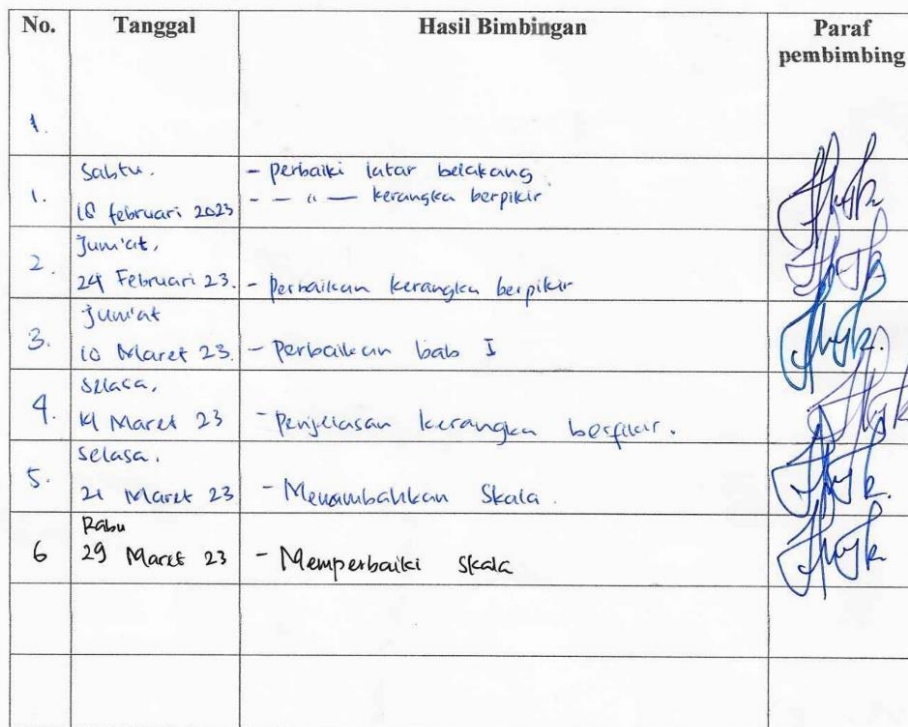 No. Tanggal Hasil Bimbingan Paraf
pembimbing
1.
Sabtu. - perbaiki latar belakang.
1. 18 februari 2023 - - " - kerangka berpikir
Jum'at,
2. 24 Februari 23. - perbaikan kerangka berpikir
Jum'at
3. 10 Maret 23. - Perbaikan bab I
Selasa,
4. 14 Maret 23 - Penjelasan kerangka berfikir.
Selasa.
5. 21 Maret 23 - Menambahkan Skala.
Rabu
6 29 Maret 23 - Memperbaiki Skala